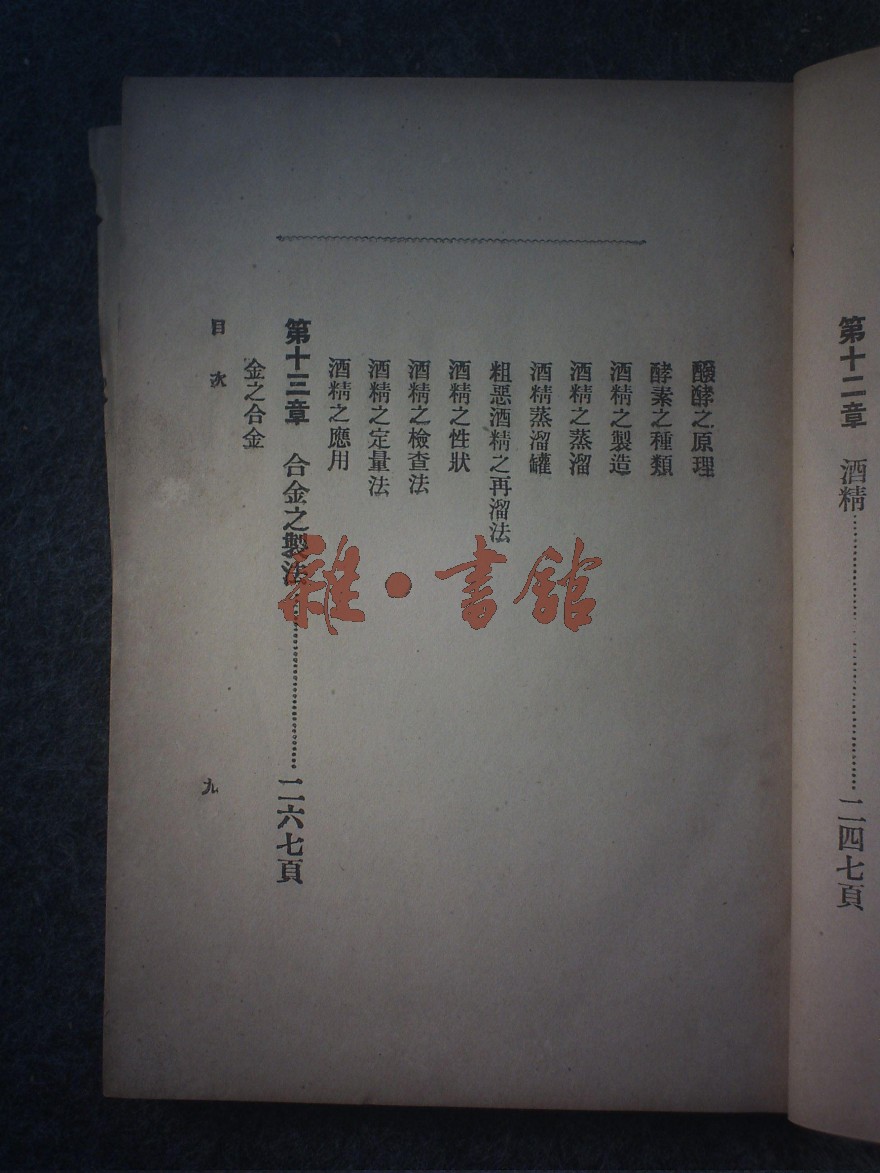 第十二章　酒精……………………二四七頁
醱酵之原理
酵素之種類
酒精之製造
酒精之蒸溜
酒精蒸溜罐
粗惡酒精之再溜法
酒精之性狀
酒精之檢查法
酒精之定量法
酒精之應用
第十三章　合金之製法……………………二六七頁
金之合金
目次
九
雜·書館